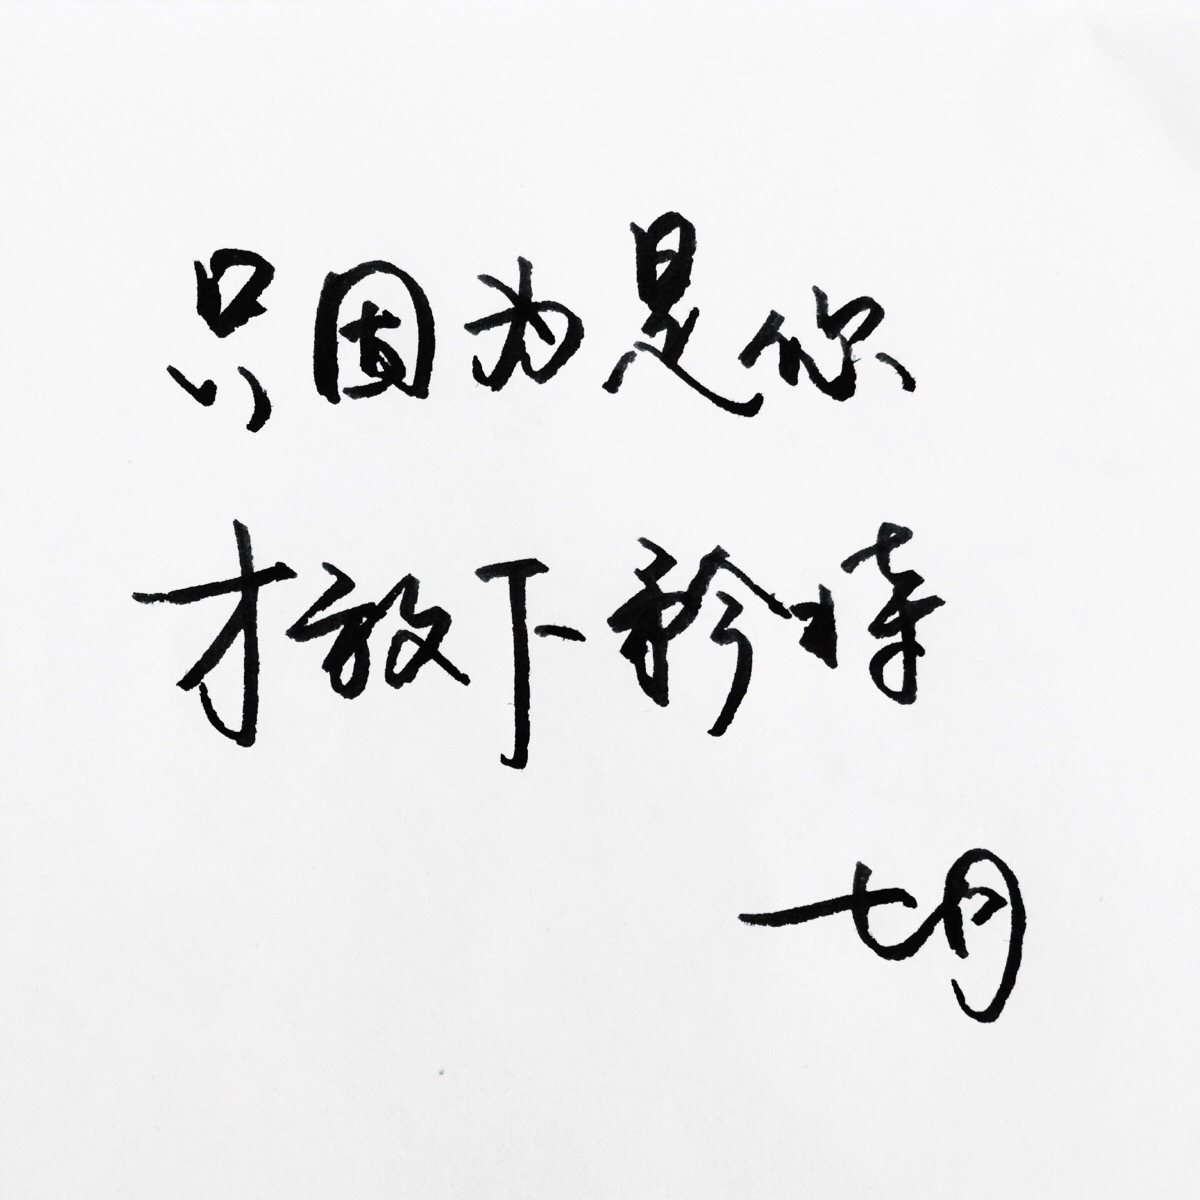 只因为是你
才放下矜持
七月